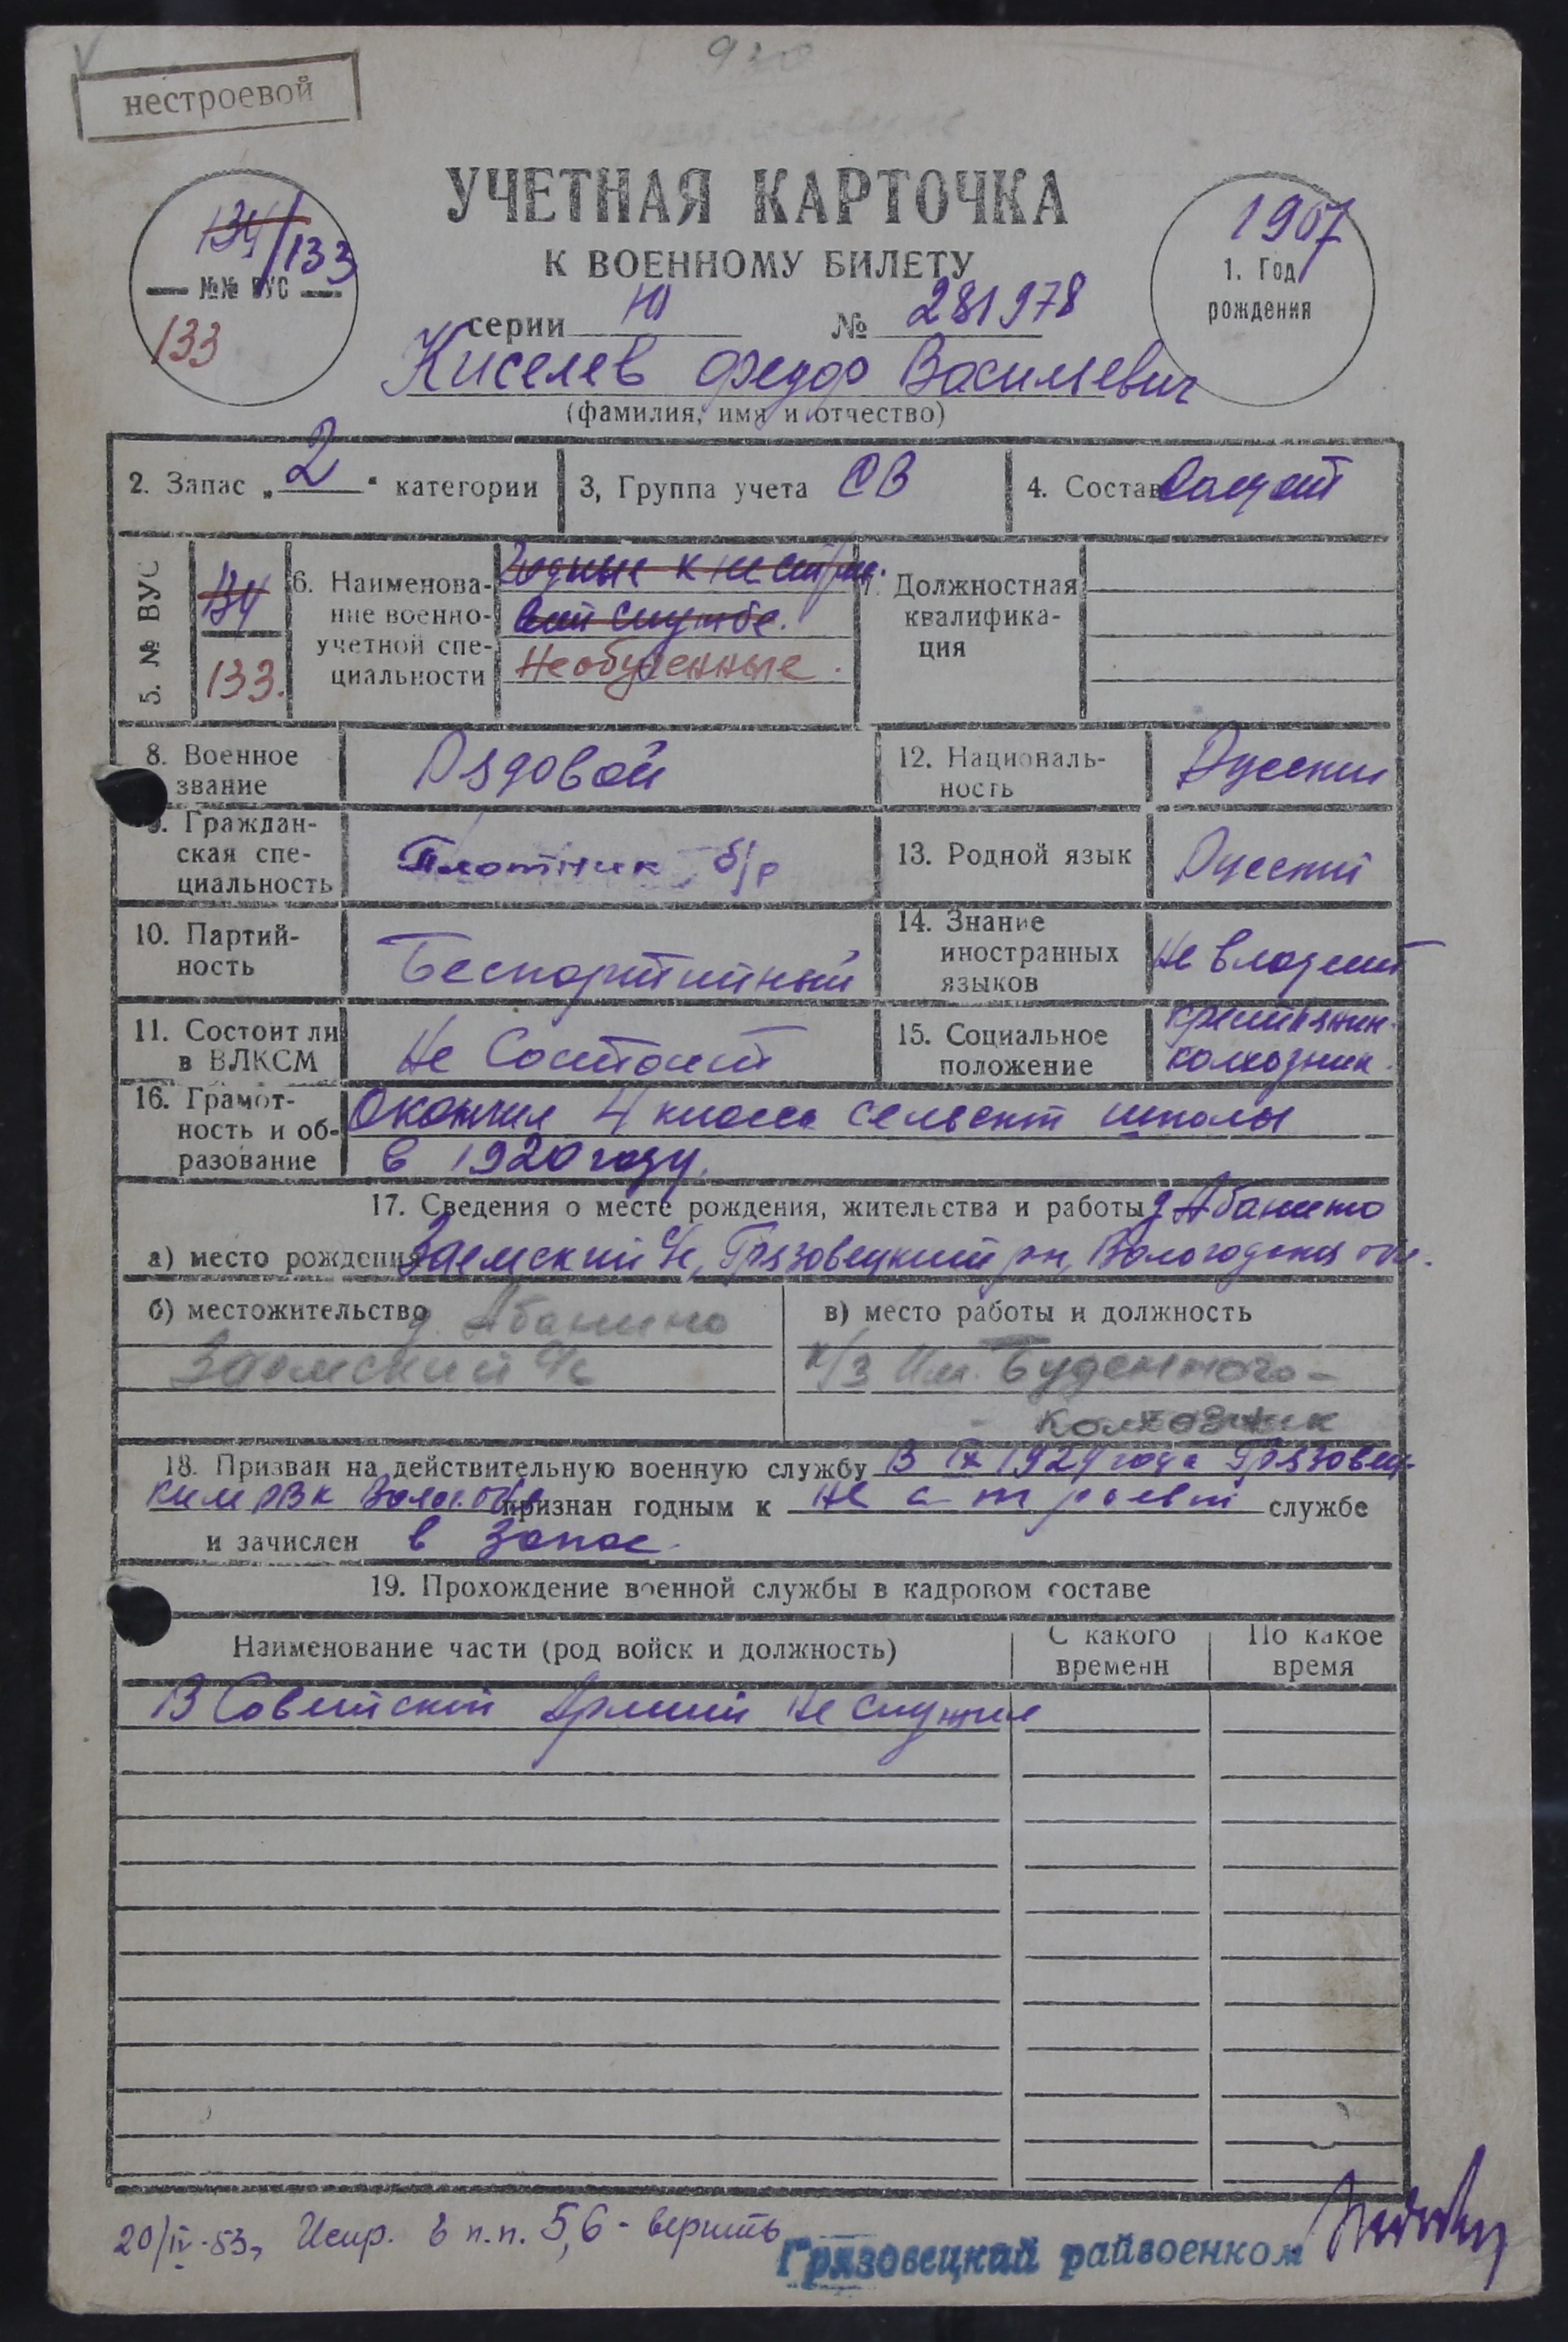 нестроевой
УЧЕТНАЯ КАРТОЧКА
К ВОЕННОМУ БИЛЕТУ
134/133
№№ ВУС
133
1907
1. Год
рождения
серии Ю № 281978
Киселев Федор Васильевич
(фамилия, имя и отчество)
2. Запас „2“ категории
3, Группа учета СВ
4. Состав Солдат
5. № ВУС
134
133.
6. Наименова-
ние военно-
учетной спе-
циальности
Годные к нестрое-
вой службе.
Необученные.
7. Должностная
квалифика-
ция
8. Военное
звание
Рядовой
12. Националь-
ность
Русский
9. Граждан-
ская спе-
циальность
Плотник б/р
13. Родной язык
Русский
10. Партий-
ность
Беспартийный
14. Знание
иностранных
языков
Не владеет
11. Состоит ли
в ВЛКСМ
Не Состоит
15. Социальное
положение
крестьянин-
колхозник.
16. Грамот-
ность и об-
разование
Окончил 4 класса сельской школы
в 1920 году.
17. Сведения о месте рождения, жительства и работы д. Абанино
а) место рождения Заемский с/с, Грязовецкий рн, Вологодская обл.
б) местожительство д. Абанино
Заемский с/с
в) место работы и должность
к/з Им. Буденного -
колхозник
18. Призван на действительную военную службу В IX 1929 года Грязовец-
ким РВК Волог. обл. признан годным к не строевой службе
и зачислен в запас.
19. Прохождение военной службы в кадровом составе
Наименование части (род войск и должность)
С какого
времени
По какое
время
В Советской Армии Не служил
20/IV-53, Испр. в п.п. 5,6 - верить
Грязовецкий райвоенком